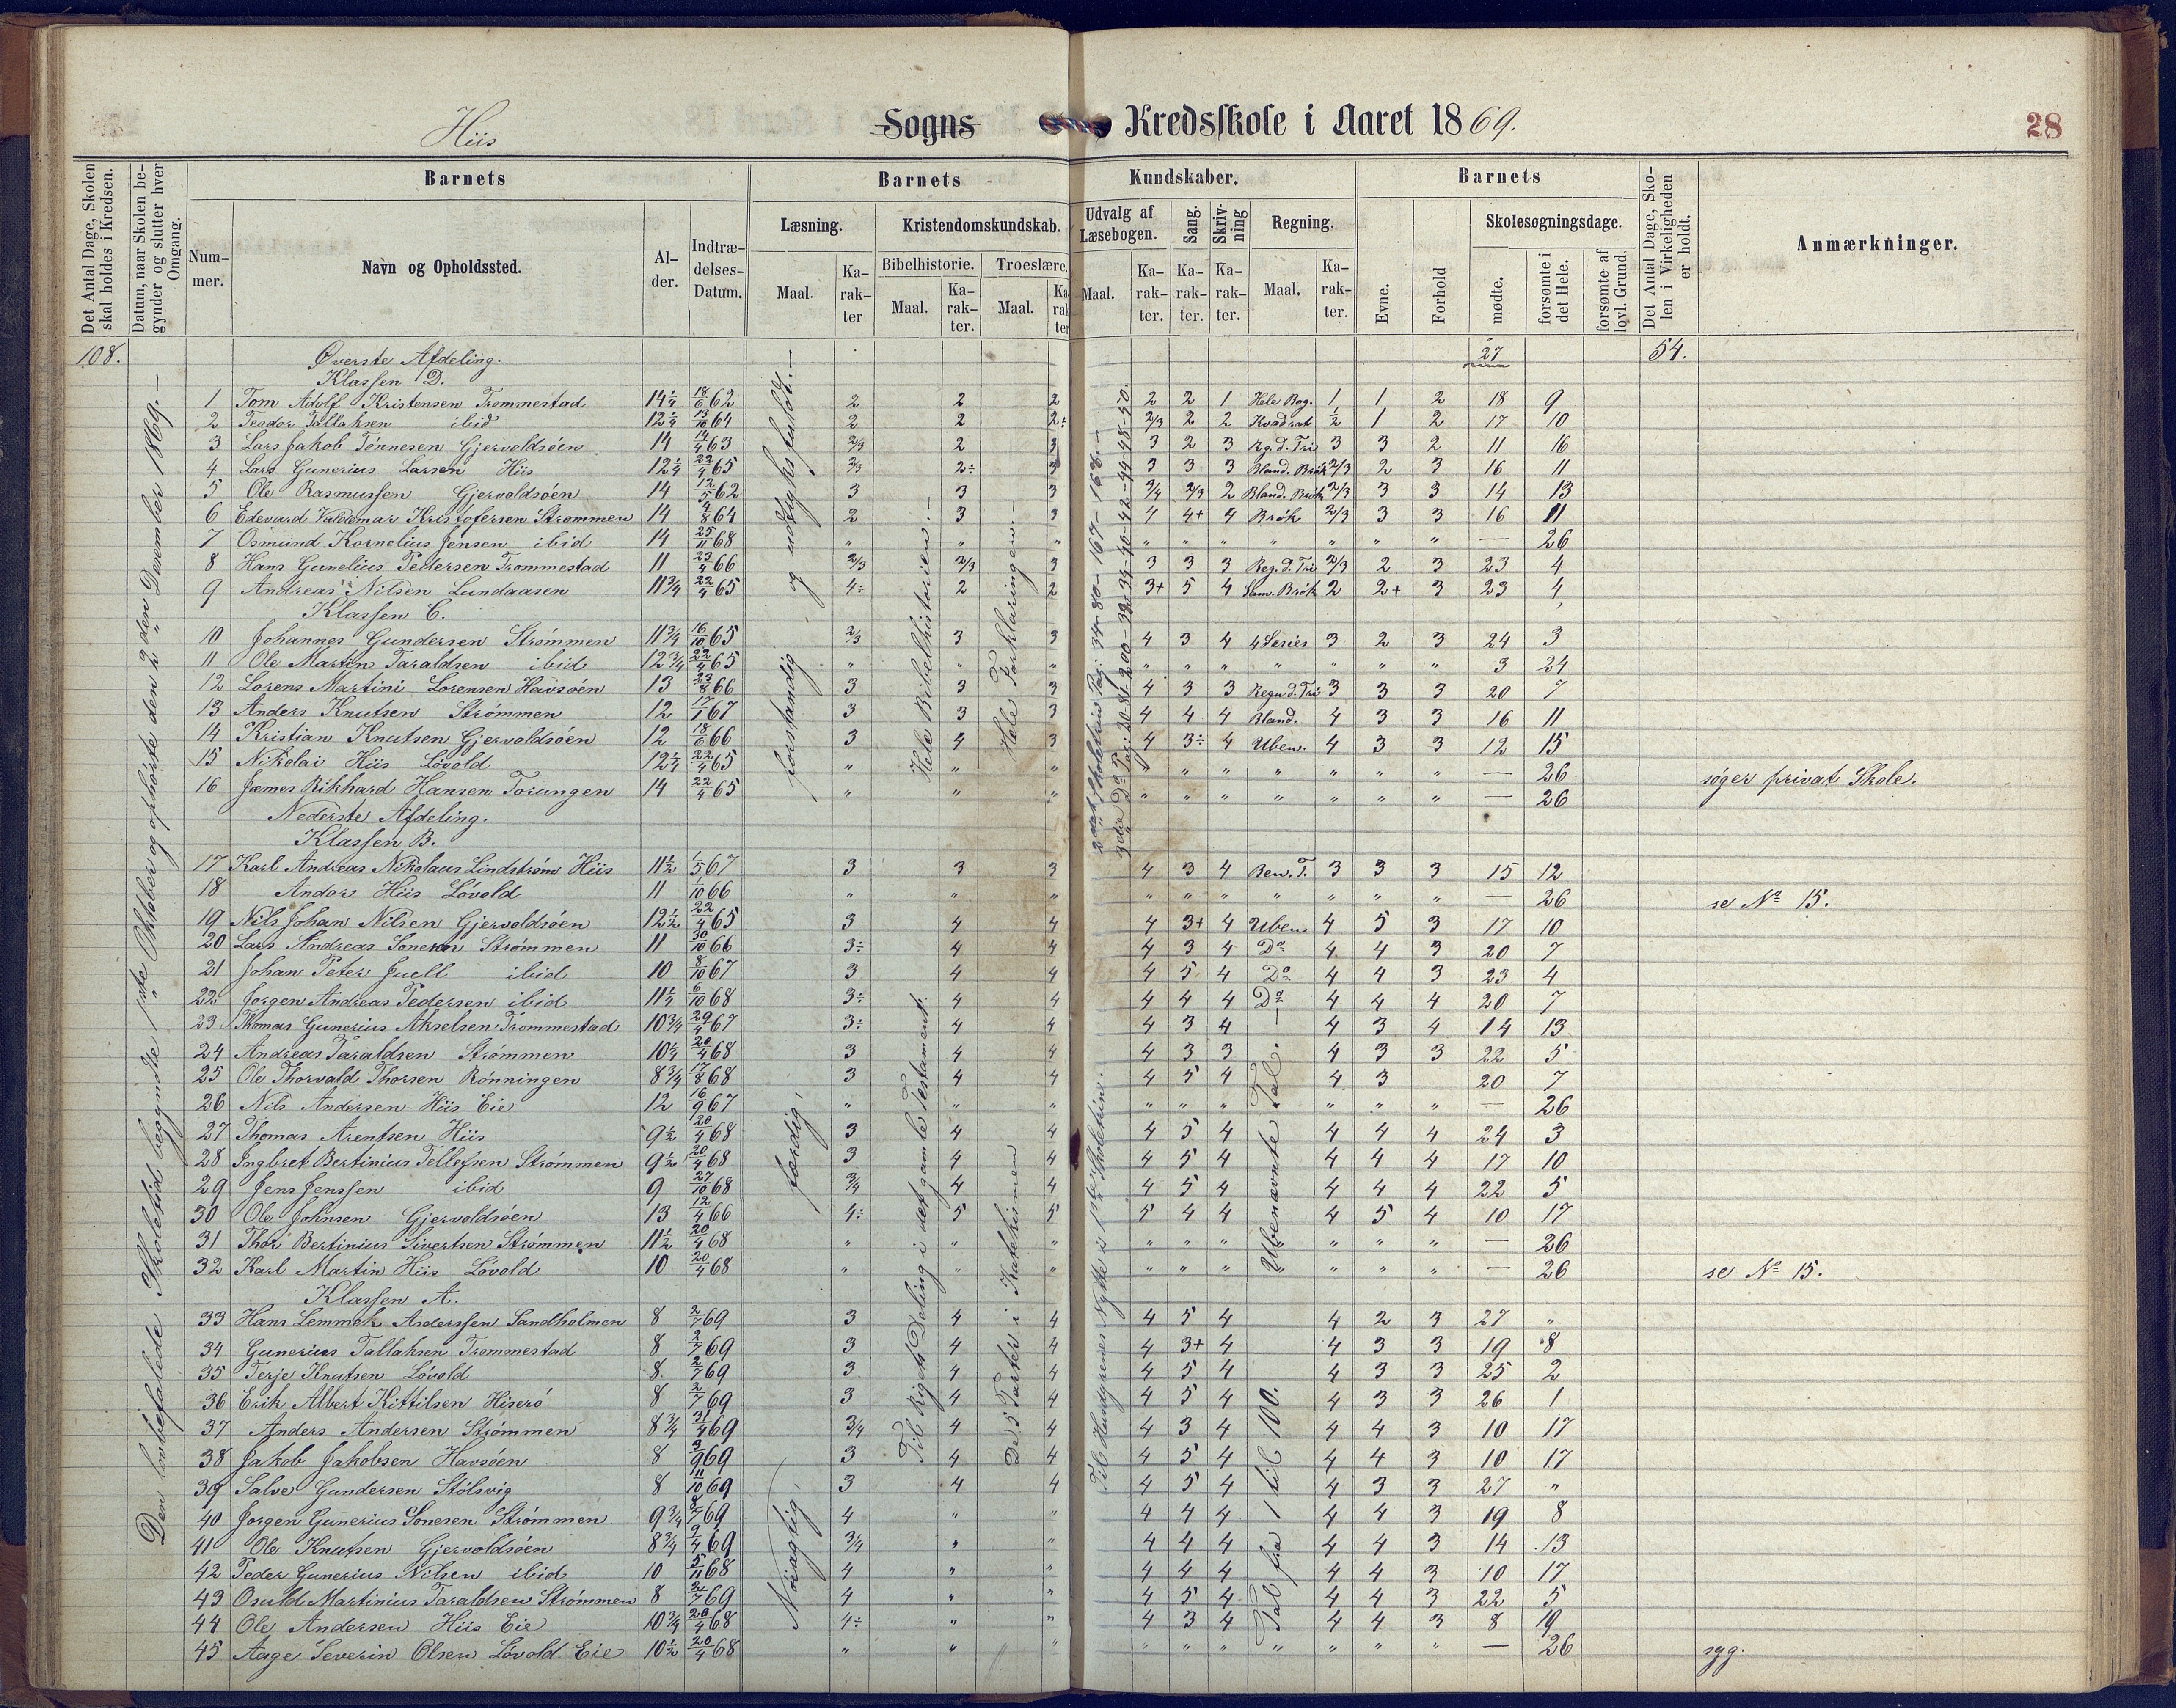 Hiis Sogns Kredsskole i Aaret 1869. 28
Det Antal Dage, Skolen skal holdes i Kredsen.
Datum, naar Skolen begynder og slutter hver Omgang.
Barnets
Nummer.
Navn og Opholdssted.
Alder.
Indtrædelses-Datum.
Barnets Kundskaber.
Læsning.
Maal.
Karakter
Kristendomskundskab.
Bibelhistorie.
Maal.
Karakter.
Troeslære.
Maal.
Karakter
Udvalg af Læsebogen.
Maal.
Karakter.
Sang.
Karakter.
Skrivning
Karakter.
Regning.
Maal.
Karakter.
Barnets
Evne.
Forhold
Skolesøgningsdage.
mødte.
forsømte i det Hele.
forsømte af lovl. Grund.
Det Antal Dage, Skolen i Virkeligheden er holdt.
Anmærkninger.
108. Øverste Afdeling. 27 54.
Klassen D.
1 Tom Adolf Kristensen Trommestad 14¼ 18/6 62 2 2 2 2 2 1 Hele Bog. 1 1 2 18 9
2 Teodor Tallaksen ibid 12¼ 13/10 64 2 2 2÷ 2/3 2 2 Kvadrat ½ 1 2 17 10
3 Lars Jakob Tønnesen Gjervoldsøen 14 14/4 63 2/3 2 3 3 2 3 Rg. d. Tri 3 3 2 11 16
4 Lars Gunerius Larsen Hiis 12¼ 22/4 65 2/3 2÷ 3 3 3 3 Bland. Brøk 2/3 2 3 16 11
5 Ole Rasmussen Gjervoldsøen 14 12/5 62 3 3 3 3/4 2/3 2 Bland. Brøk 2/3 3 3 14 13
6 Edevard Valdemar Kristofersen Strømmen 14 4/8 64 2 3 3 4 4+ 4 Brøk 2/3 3 3 16 11
7 Osmund Kornelius Jensen ibid 14 25/11 68 " " " " " " " " " " — 26
8 Hans Gunelius Pedersen Trommestad 11 23/4 66 2/3 2/3 3 3 3 3 Reg. d. Tri 2/3 2 3 23 4
9 Andreas Nilsen Lundaasen 11¾ 22/4 65 4÷ 2 2 3+ 5 4 Sam. Brøk 2 2+ 3 23 4
Klassen C.
10 Johannes Gundersen Strømmen 11¾ 16/10 65 2/3 3 3 4 3 4 4 Series 3 2 3 24 3
11 Ole Martin Taraldsen ibid 12¾ 22/4 65 " " " " " " " " " " 3 24
12 Lorens Martini Lorensen Havsøen 13 23/8 66 3 3 3 4 3 3 Regn d. Tri 3 3 3 20 7
13 Anders Knutsen Strømmen 12 17/1 67 3 3 3 4 4 4 Bland. 4 3 3 16 11
14 Kristian Knutsen Gjervoldsøen 12 18/6 66 3 4 3 4 3÷ 4 Uben. 4 3 3 12 15
15 Nikolai Hiis Løvold 12¼ 22/4 65 " " " " " " " " " " — 26 søger privat Skole.
16 James Rikhard Hansen Torungen 14 22/4 65 " " " " " " " " " " — 26
Nederste Afdeling.
Klassen B.
17 Karl Andreas Nikolaus Lindstrøm Hiis 11½ 1/5 67 3 3 3 4 3 4 Ben. T. 3 3 3 15 12
18 Andor Hiis Løvold 11 1/10 66 " " " " " " " " " " — 26 se No 15.
19 Nils Johan Nilsen Gjervoldsøen 12½ 22/4 65 3 4 4 4 3+ 4 Uben 4 5 3 17 10
20 Lars Andreas Sonesen Strømmen 11 30/10 66 3÷ 4 4 4 3 4 Do 4 4 3 20 7
21 Johan Peter Juell ibid 10 8/10 67 3 4 4 4 5 4 Do 4 4 3 23 4
22 Jørgen Andreas Pedersen ibid 11¼ 6/10 68 3÷ 4 4 4 4 4 Do 4 4 4 20 7
23 Thomas Gunerius Akselsen Trommestad 10¾ 29/4 67 3÷ 4 4 4 3 4 4 3 4 14 13
24 Andreas Taraldsen Strømmen 10¼ 20/4 68 3 4 4 4 3 3 4 3 3 22 5
25 Ole Thorvald Thorsen Rønningen 8¾ 17/8 68 3 4 4 4 5 4 4 3 20 7
26 Nils Andersen Hiis Eie 12 16/9 67 " " " " " " " " " — 26
27 Thomas Arentsen Hiis 9½ 20/4 68 3 4 4 4 5 4 4 4 4 24 3
28 Ingbret Bertinius Tellefsen Strømmen 9½ 20/4 68 3 4 4 4 5 4 4 4 4 17 10
29 Jens Jenssen ibid 9 27/10 68 3/4 4 4 4 5 4 4 4 4 22 5
30 Ole Johnsen Gjervoldsøen 13 12/4 66 4÷ 5 5 5 4 4 4 5 4 10 17
31 Thor Bertinius Sivertsen Strømmen 11½ 20/4 68 " " " " " " " " " — 26
32 Karl Martin Hiis Løvold 10 20/4 68 " " " " " " " " " — 26 se No 15.
Klassen A.
33 Hans Lemmek Anderssen Sandholmen 8 2/7 69 3 4 4 4 5 4 4 2 3 27 "
34 Gunerius Tallaksen Trommestad 8 2/7 69 3 4 4 4 3+ 4 4 3 3 19 8
35 Terje Knutsen Løvold 8 2/7 69 3 4 4 4 5 4 4 3 3 25 2
36 Erik Albert Kittilsen Hiserø 8 2/7 69 3 4 4 4 5 4 4 3 3 26 1
37 Anders Andersen Strømmen 8¾ 31/4 69 3/4 4 4 4 3 4 4 4 3 10 17
38 Jakob Jakobsen Havsøen 8 3/9 69 3 4 4 4 5 4 4 4 3 10 17
39 Salve Gundersen Stølsvig 8 11/10 69 3 4 4 4 5 4 4 3 3 27 "
40 Jørgen Gunerius Sonesen Strømmen 9¾ 8/7 69 4 " " 4 4 4 4 4 3 19 8
41 Ole Knutsen Gjervoldsøen 8¾ 9/4 69 3/4 " " 4 4 4 4 4 3 14 13
42 Peder Gunerius Nilsen ibid 10 5/11 68 4 " " 4 4 4 4 4 3 10 17
43 Osuld Martinius Taraldsen Strømmen 8 2/7 69 4 " " 4 5 4 4 4 3 22 5
44 Ole Andersen Hiis Eie 10¾ 20/4 68 4÷ " " 4 3 4 4 4 3 8 19
45 Aage Severin Olsen Løvold Eie 10½ 20/4 68 " " " " " " " " " " — 26 syg.
Den lovbefalede Skoletid begyndte 1ste Oktober og ophørte den 2den December 1869.—
forstandig og udtryksfuldt.—
færdig,
Nøiagtig,
Hele Bibelhistorien.—
Til Rigets Deling i det gamle Testament.
Hele Forklaringen.—
De 5 Parter i Katekismen
2det Skoletrin Pag: 34-80-167-168.—
3die Do Pag: 20-81-200-32-34-40-42-44-48-50.
Til Hungrenes Nytte i 1ste Skoletrin.
Ubenævnte Tal.—
Tal fra 1 til 100.